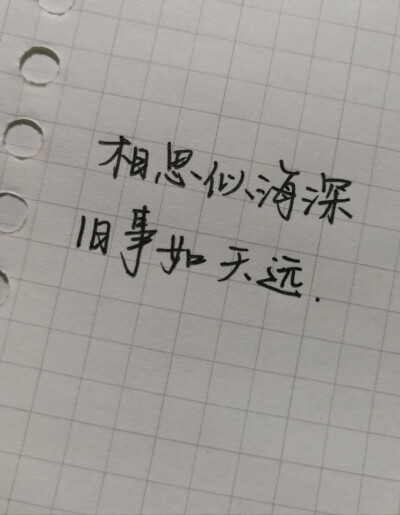 相思似海深
旧事如天远.